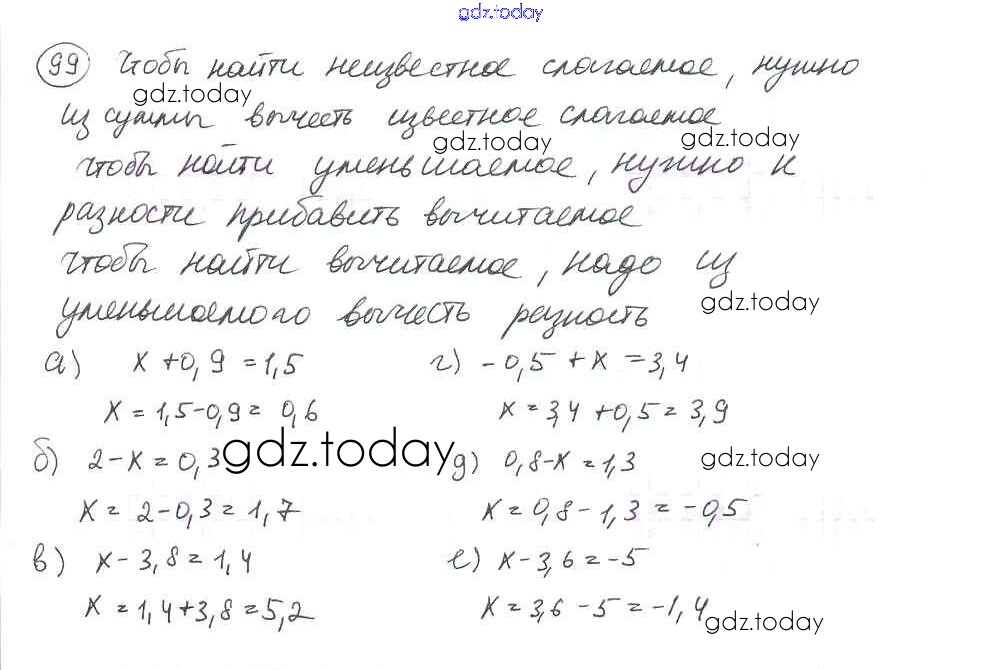 gdz.today
99 Чтобы найти неизвестное слагаемое, нужно
gdz.today
из суммы вычесть известное слагаемое
gdz.today gdz.today
чтобы найти уменьшаемое, нужно к
разности прибавить вычитаемое
чтобы найти вычитаемое, надо из
gdz.today
уменьшаемого вычесть разность
а) x + 0,9 = 1,5 г) - 0,5 + x = 3,4
x = 1,5 - 0,9 = 0,6 x = 3,4 + 0,5 = 3,9
б) 2 - x = 0,3 gdz.today д) 0,8 - x = 1,3 gdz.today
x = 2 - 0,3 = 1,7 x = 0,8 - 1,3 = -0,5
в) x - 3,8 = 1,4 е) x - 3,6 = -5
x = 1,4 + 3,8 = 5,2 x = 3,6 - 5 = -1,4
gdz.today gdz.today